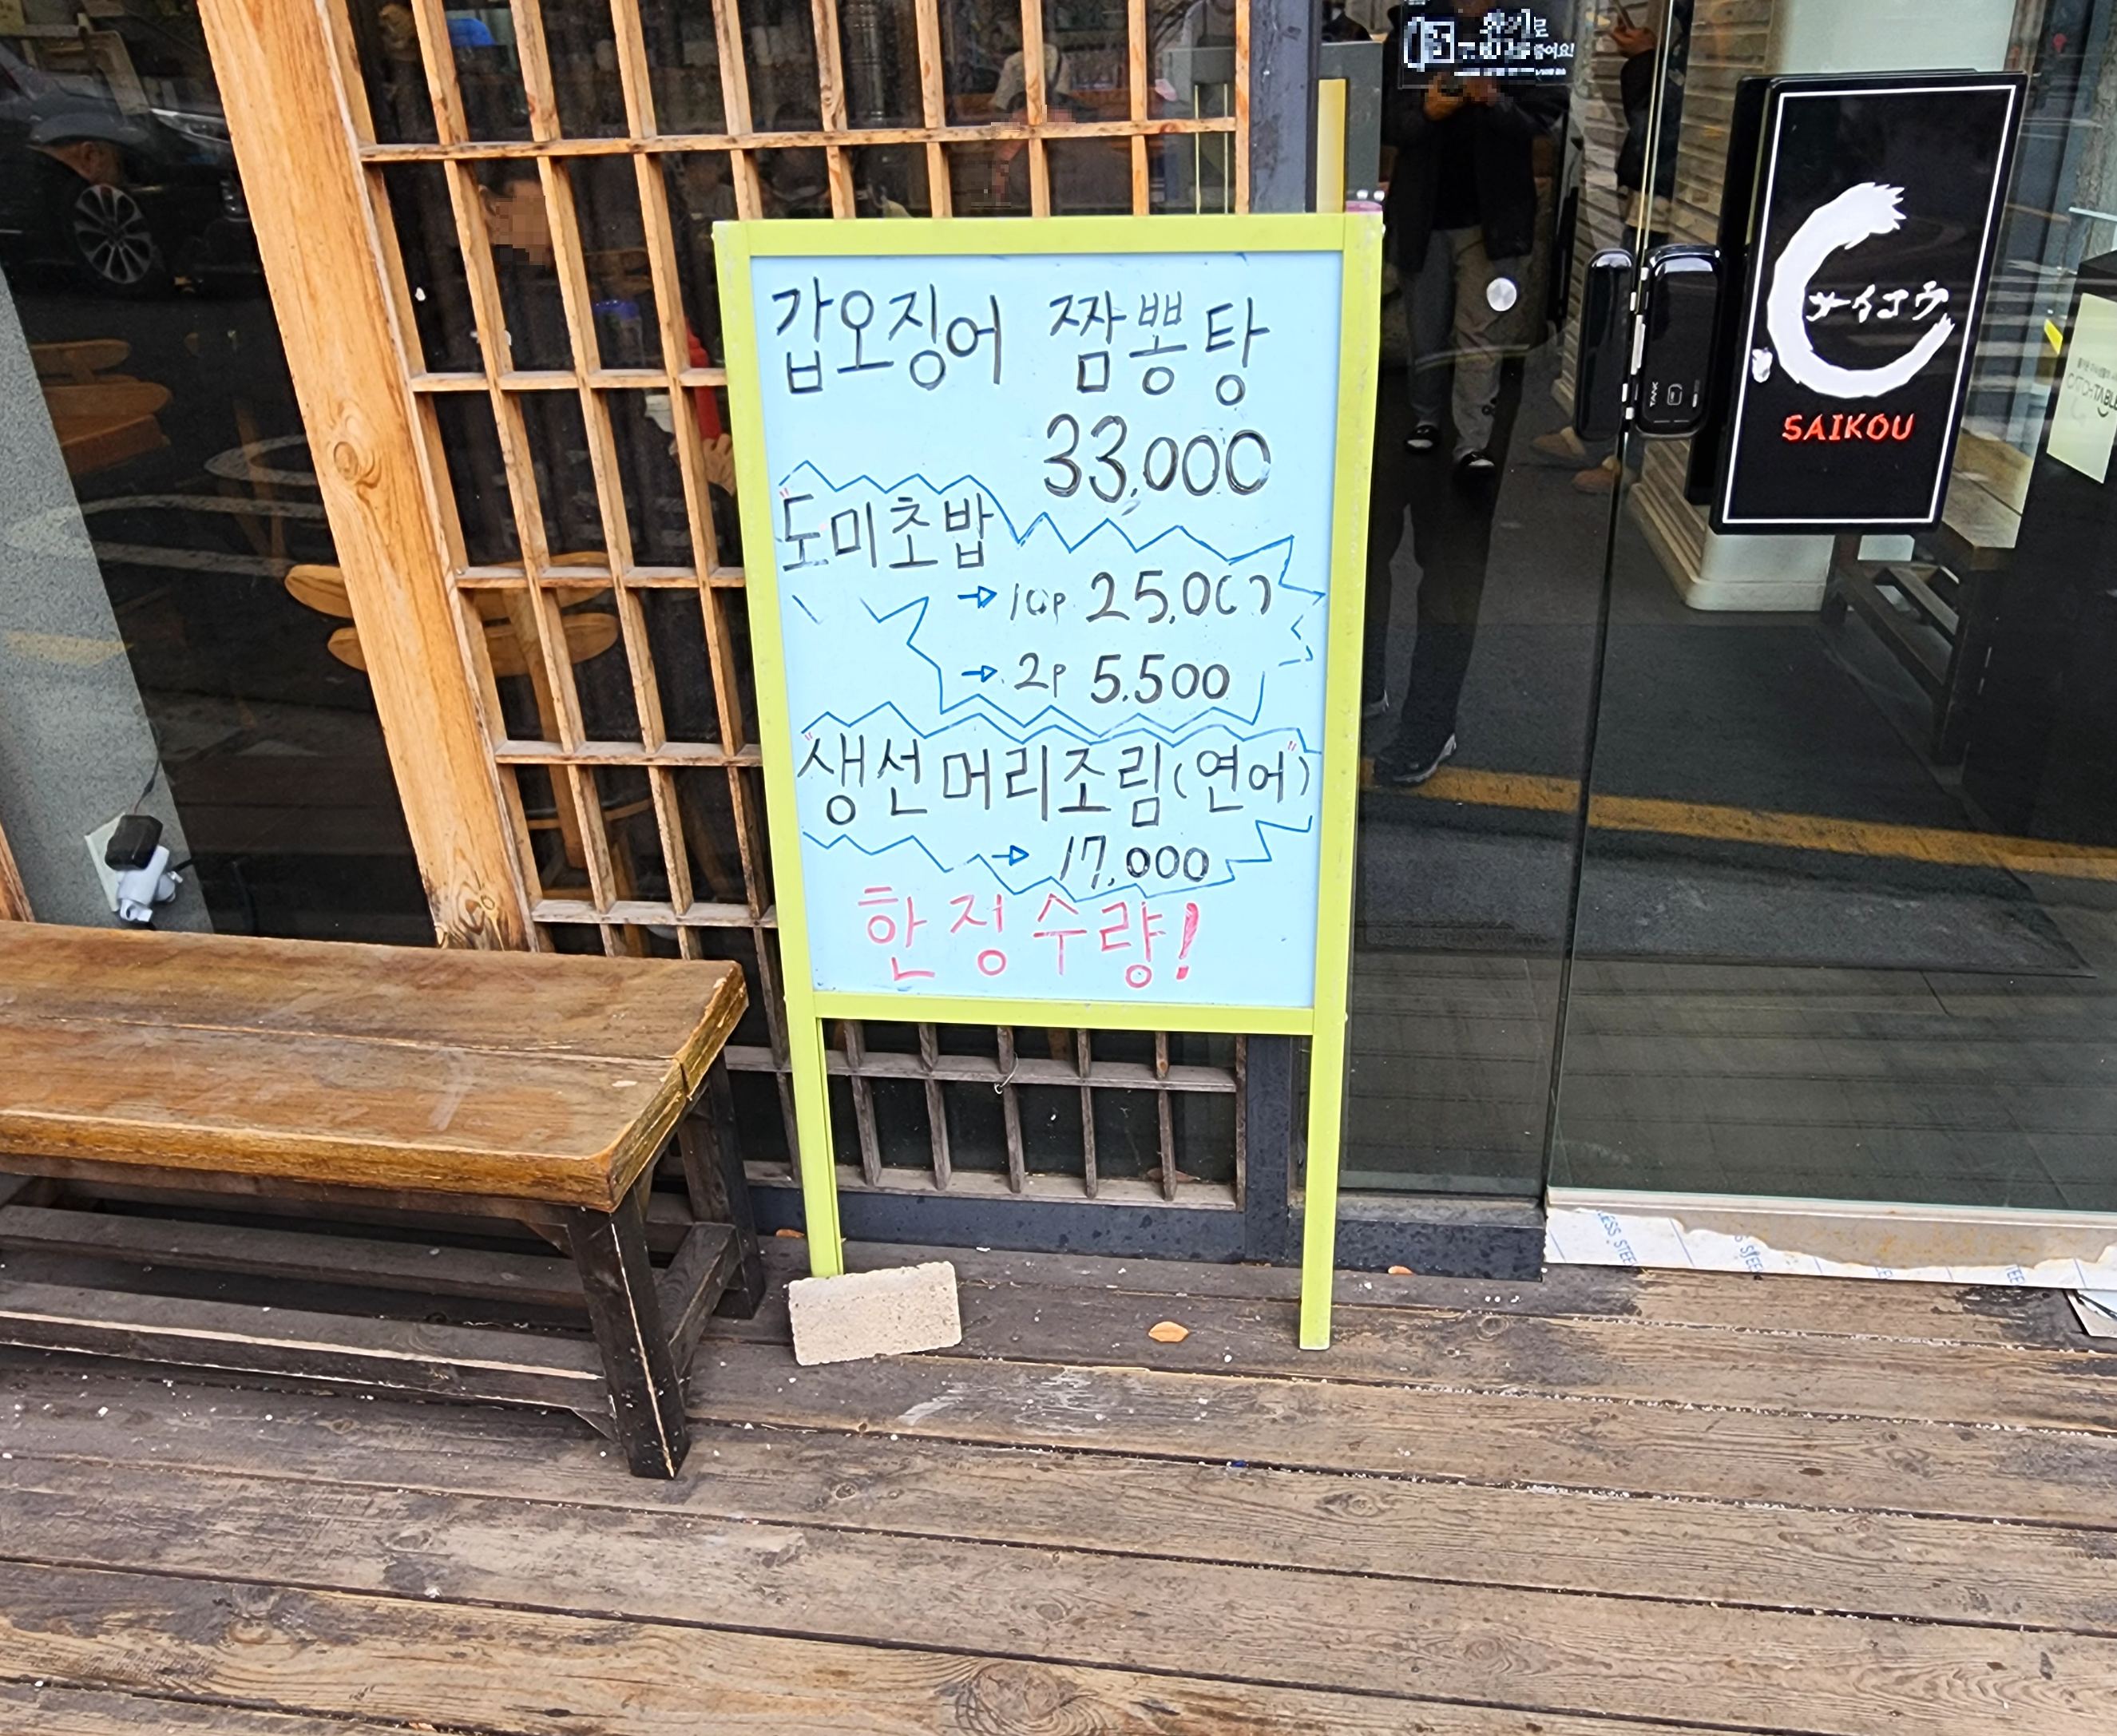 갑오징어 짬뽕탕
33,000
"도미초밥
→ 10p 25,000
→ 2p 5.500
"생선머리조림(연어)"
→ 17,000
한정수량!
サイコウ
SAIKOU
TANK